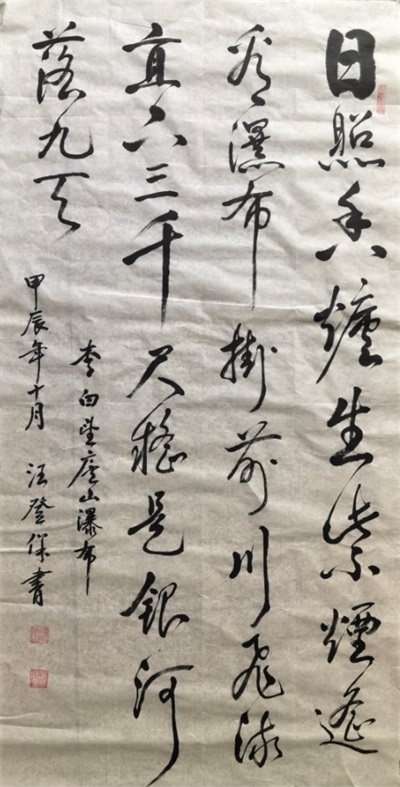 日照香爐生紫煙遙
看瀑布掛前川飛流
直下三千尺疑是銀河
落九天
李白望廬山瀑布
甲辰年十月 汪登保書